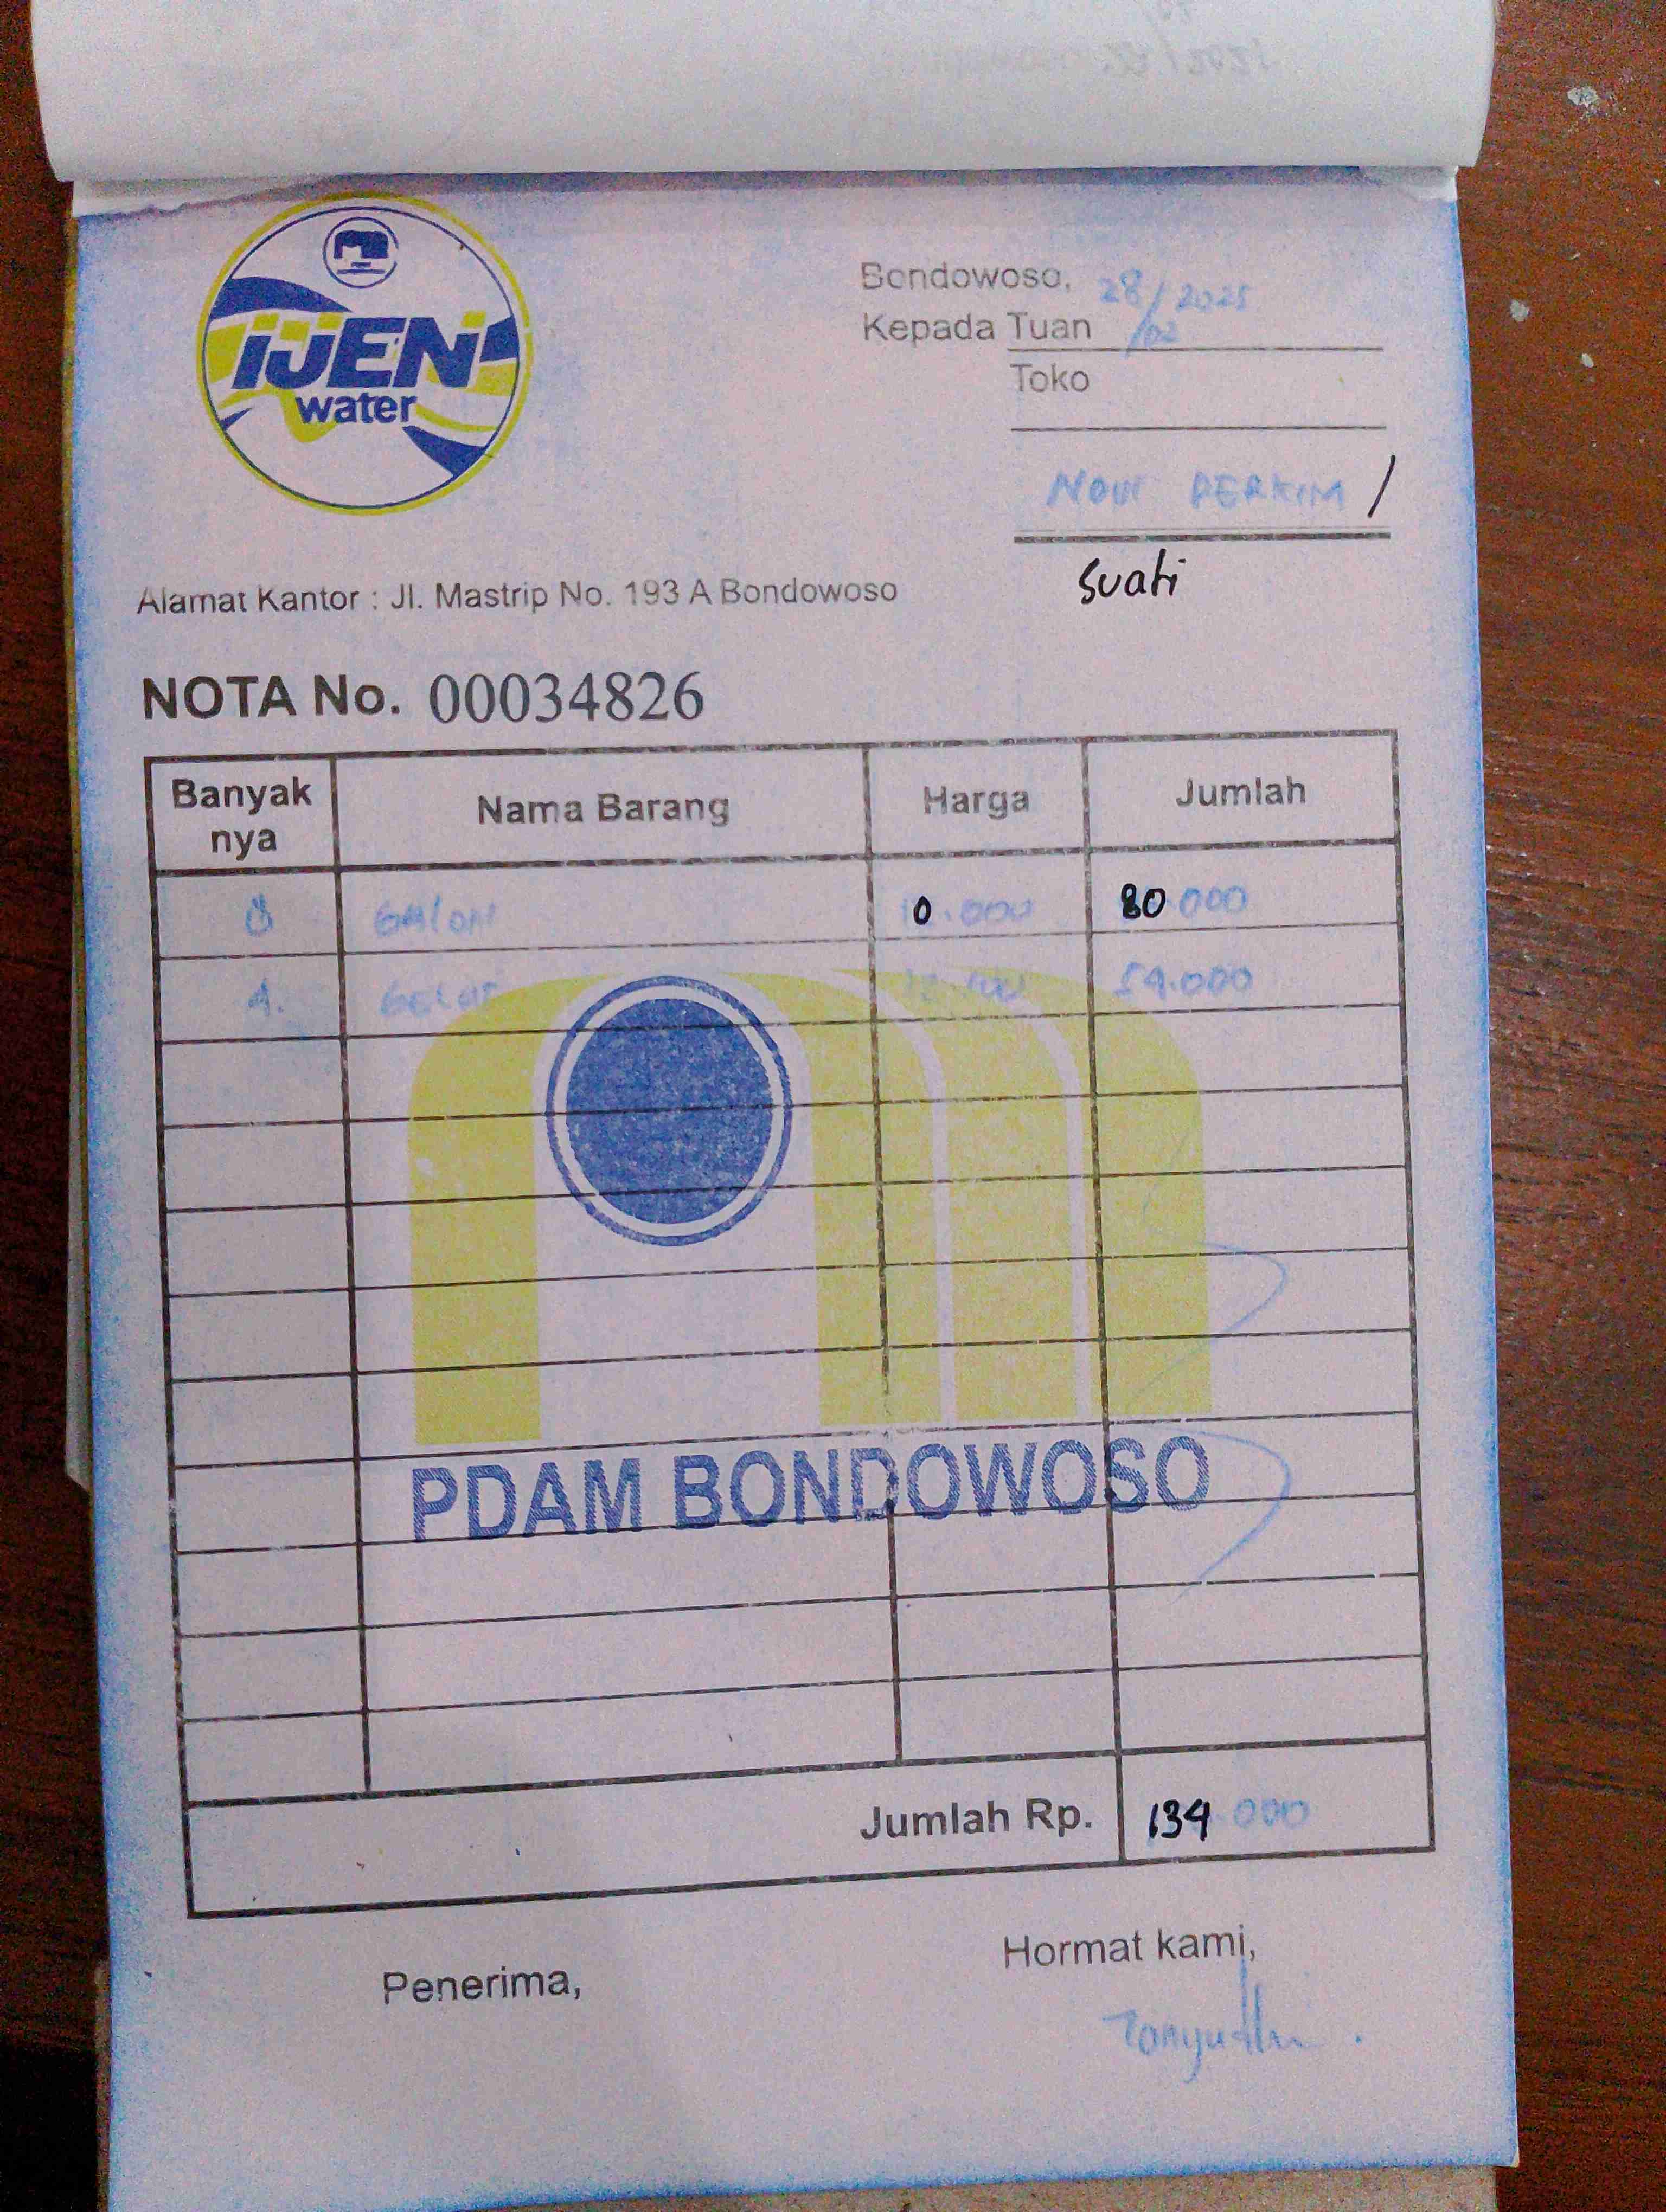 IJEN
water
Bondowoso, 28/02/2025
Kepada Tuan
Toko
NOVI PERKIM /
Suati
Alamat Kantor : Jl. Mastrip No. 193 A Bondowoso
NOTA No. 00034826
Banyak nya Nama Barang Harga Jumlah
8 GALON 10.000 80.000
4. GELAS 54.000
PDAM BONDOWOSO
Jumlah Rp. 134.000
Penerima, Hormat kami,